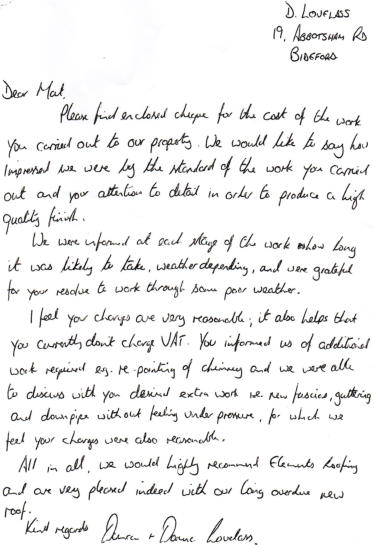 D. LOVELASS
19, ABBOTSHAM RD
BIDEFORD
Dear Mat.
Please find enclosed cheque for the cost of the work
you carried out to our property. We would like to say how
impressed we were by the standard of the work you carried
out and your attention to detail in order to produce a high
quality finish.
We were informed at each stage of the work how long
it was likely to take, weather depending, and were grateful
for your resolve to work through some poor weather.
I feel your charges are very reasonable; it also helps that
you currently don't charge VAT. You informed us of additional
work required eg. re-pointing of chimney and we were able
to discuss with you desired extra work i.e. new fascias, guttering
and downpipe without feeling under pressure, for which we
feel your charges were also reasonable.
All in all, we would highly recommend Elements Roofing
and are very pleased indeed with our long overdue new
roof.
Kind regards Duncan + Dawne Lovelass.